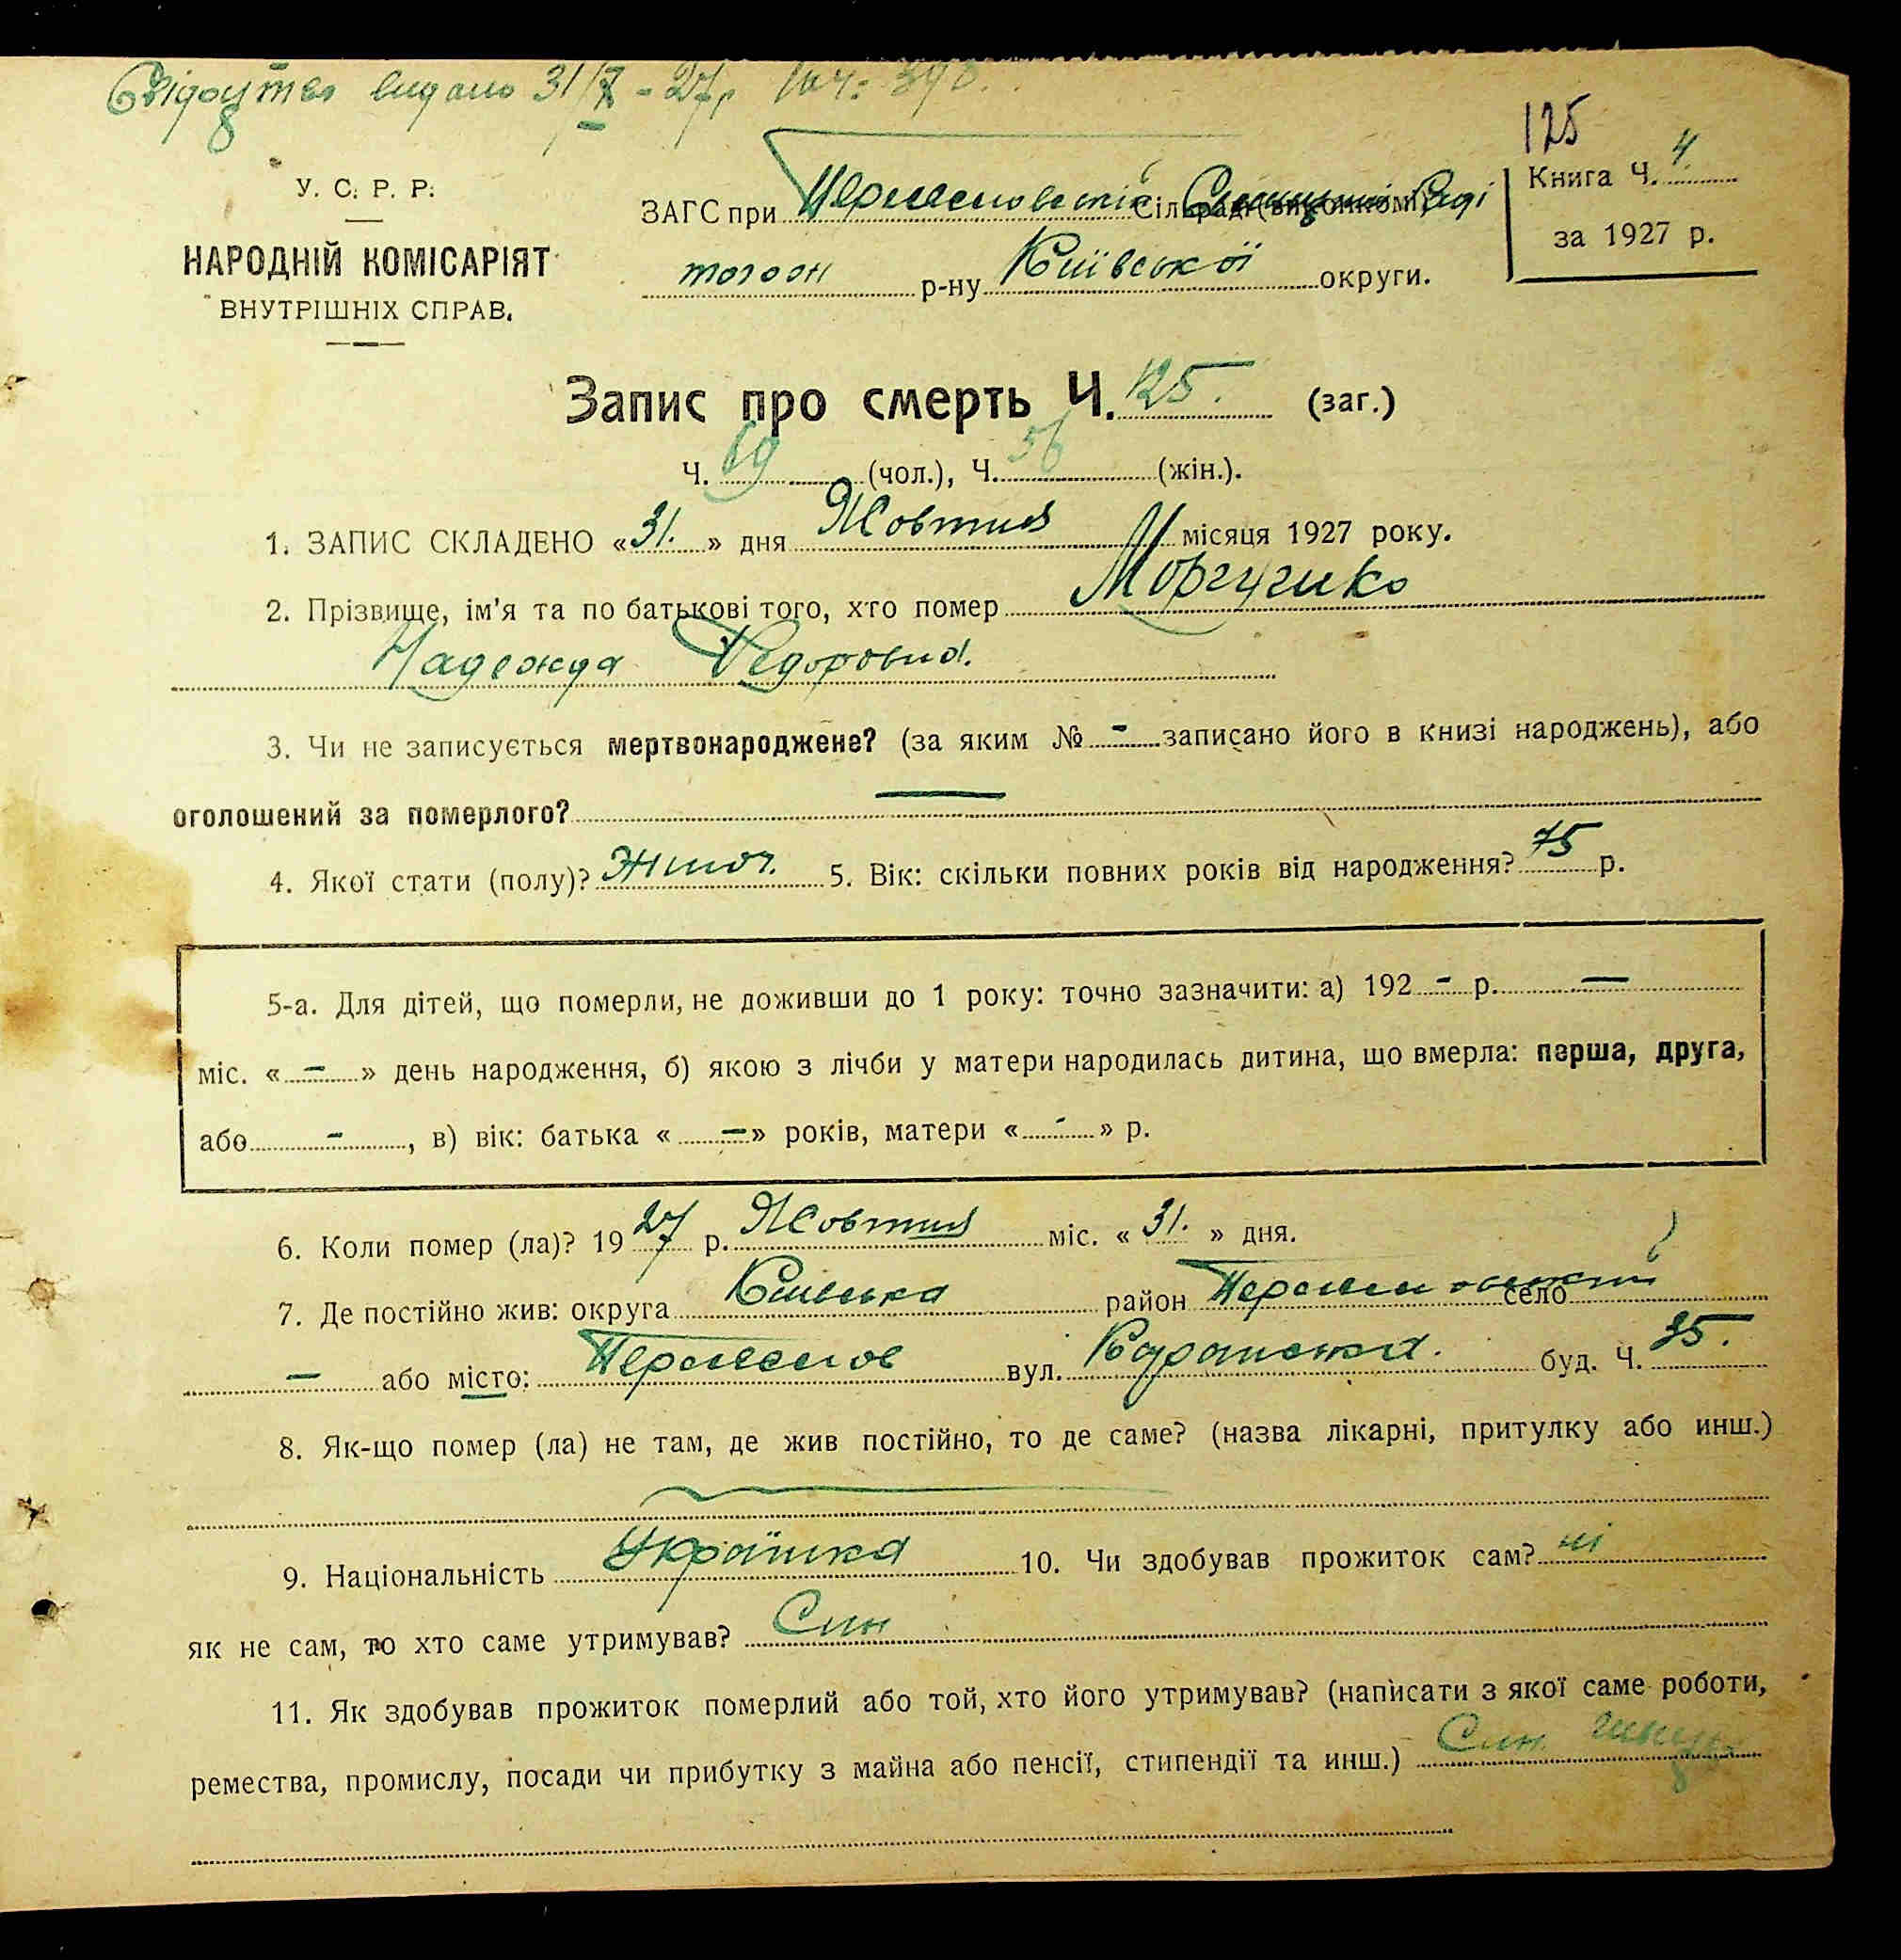 Свідоцтво видано 31/X - 27 р.
125
У. С. Р. Р.
НАРОДНІЙ КОМІСАРІЯТ
ВНУТРІШНІХ СПРАВ.
ЗАГС при Сільраді (виконкомі)
того ж р-ну Київської округи.
Книга Ч. 4
за 1927 р.
Запис про смерть Ч. 125. (заг.)
Ч. 69 (чол.), Ч. 56 (жін.).
1. ЗАПИС СКЛАДЕНО «31.» дня Жовтня місяця 1927 року.
2. Прізвище, ім'я та по батькові того, хто помер
Надежда Федоровна.
3. Чи не записується мертвонароджене? (за яким № - записано його в книзі народжень), або
оголошений за померлого? —
4. Якої стати (полу)? Жіноч. 5. Вік: скільки повних років від народження? 75 р.
5-а. Для дітей, що померли, не доживши до 1 року: точно зазначити: а) 192 - р. —
міс. « - » день народження, б) якою з лічби у матери народилась дитина, що вмерла: перша, друга,
або - , в) вік: батька « - » років, матери « - » р.
6. Коли помер (ла)? 1927 р. Жовтня міс. « 31. » дня.
7. Де постійно жив: округа Київська район село
— або місто: вул. буд. Ч. 35.
8. Як-що помер (ла) не там, де жив постійно, то де саме? (назва лікарні, притулку або инш.)
9. Національність Українка 10. Чи здобував прожиток сам? ні
як не сам, то хто саме утримував? Син
11. Як здобував прожиток померлий або той, хто його утримував? (написати з якої саме роботи,
ремества, промислу, посади чи прибутку з майна або пенсії, стипендії та инш.) Син